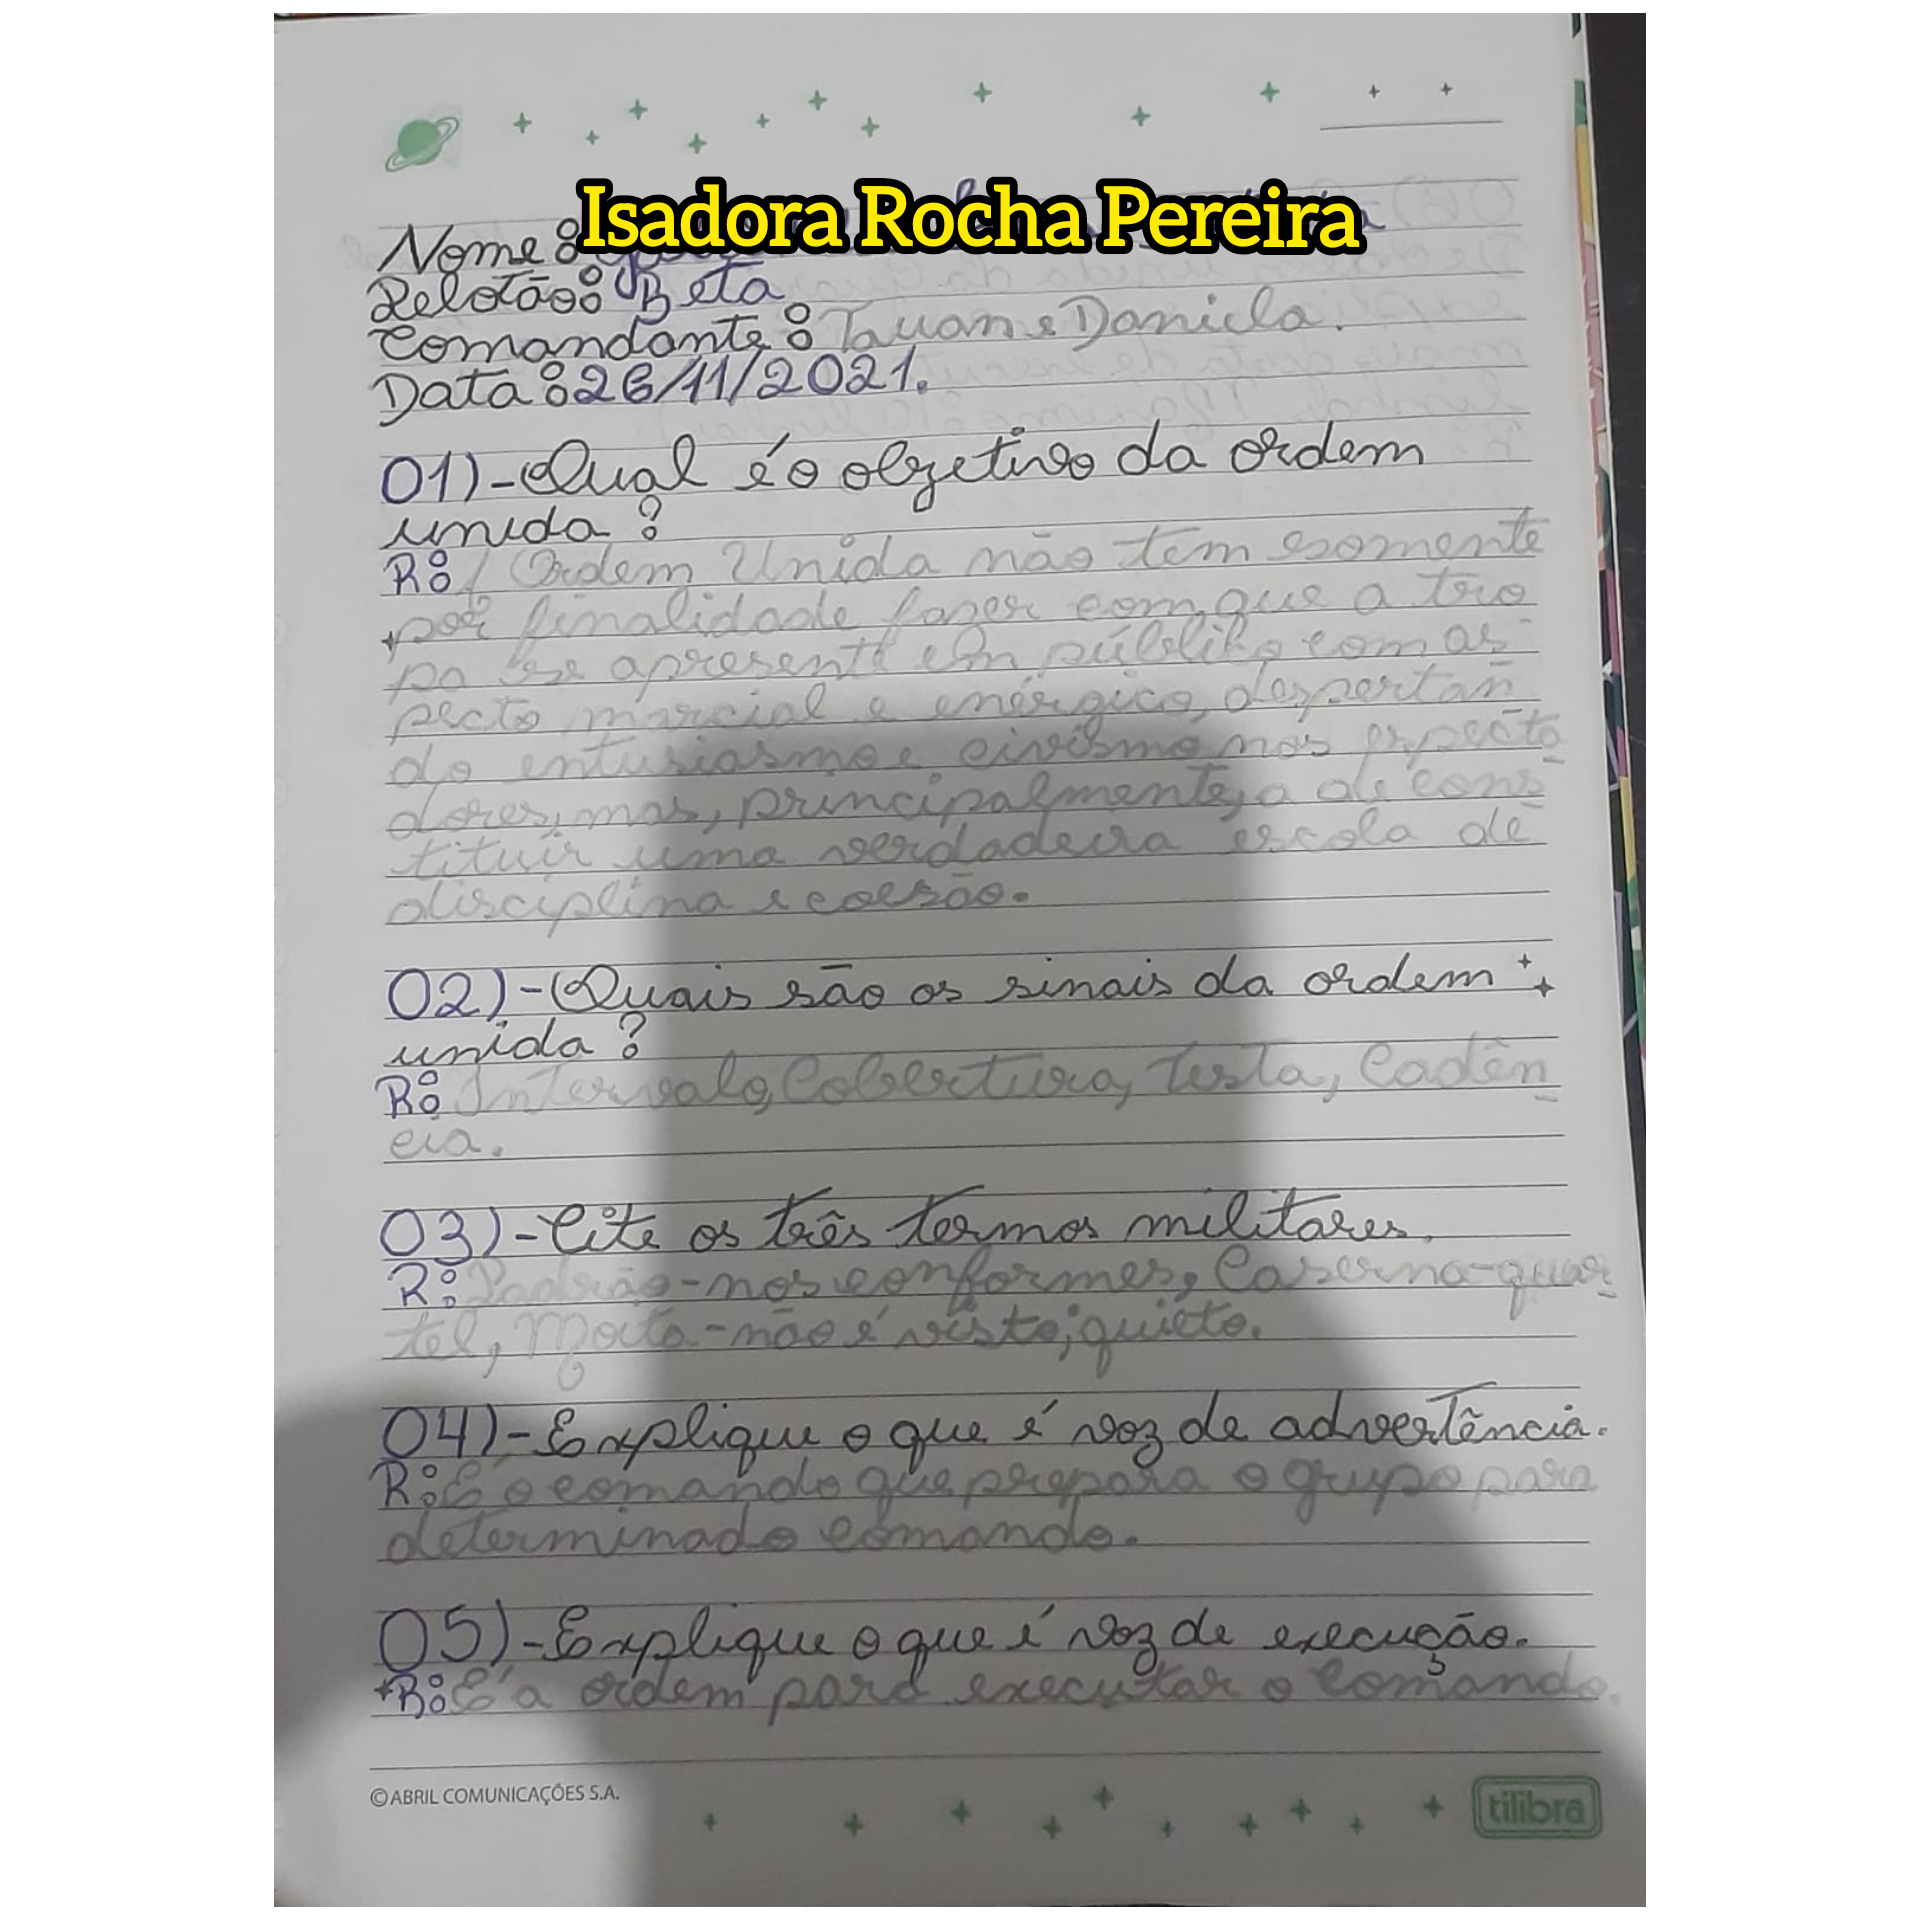 Isadora Rocha Pereira
Nome:
Pelotão: Beta
Comandante: Tauan e Daniela.
Data: 26/11/2021.
01)-Qual é o objetivo da ordem
unida?
R: A Ordem Unida não tem somente
por finalidade fazer com que a tro
pa se apresente em público com as
pecto marcial e enérgico, despertan
do entusiasmo e civismo nos especta
dores, mas, principalmente, a de cons
tituir uma verdadeira escola de
disciplina e coesão.
02)-Quais são os sinais da ordem
unida?
R: Intervalo, Cobertura, Testa, Cadên
cia.
03)-Cite os três termos militares.
R: Padrão-nos conformes, Caserna-quar
tel, Moita-não é visto; quieto.
04)-Explique o que é voz de advertência.
R: É o comando que prepara o grupo para
determinado comando.
05)-Explique o que é voz de execução.
R: É a ordem para executar o comando.
©ABRIL COMUNICAÇÕES S.A.
tilibra